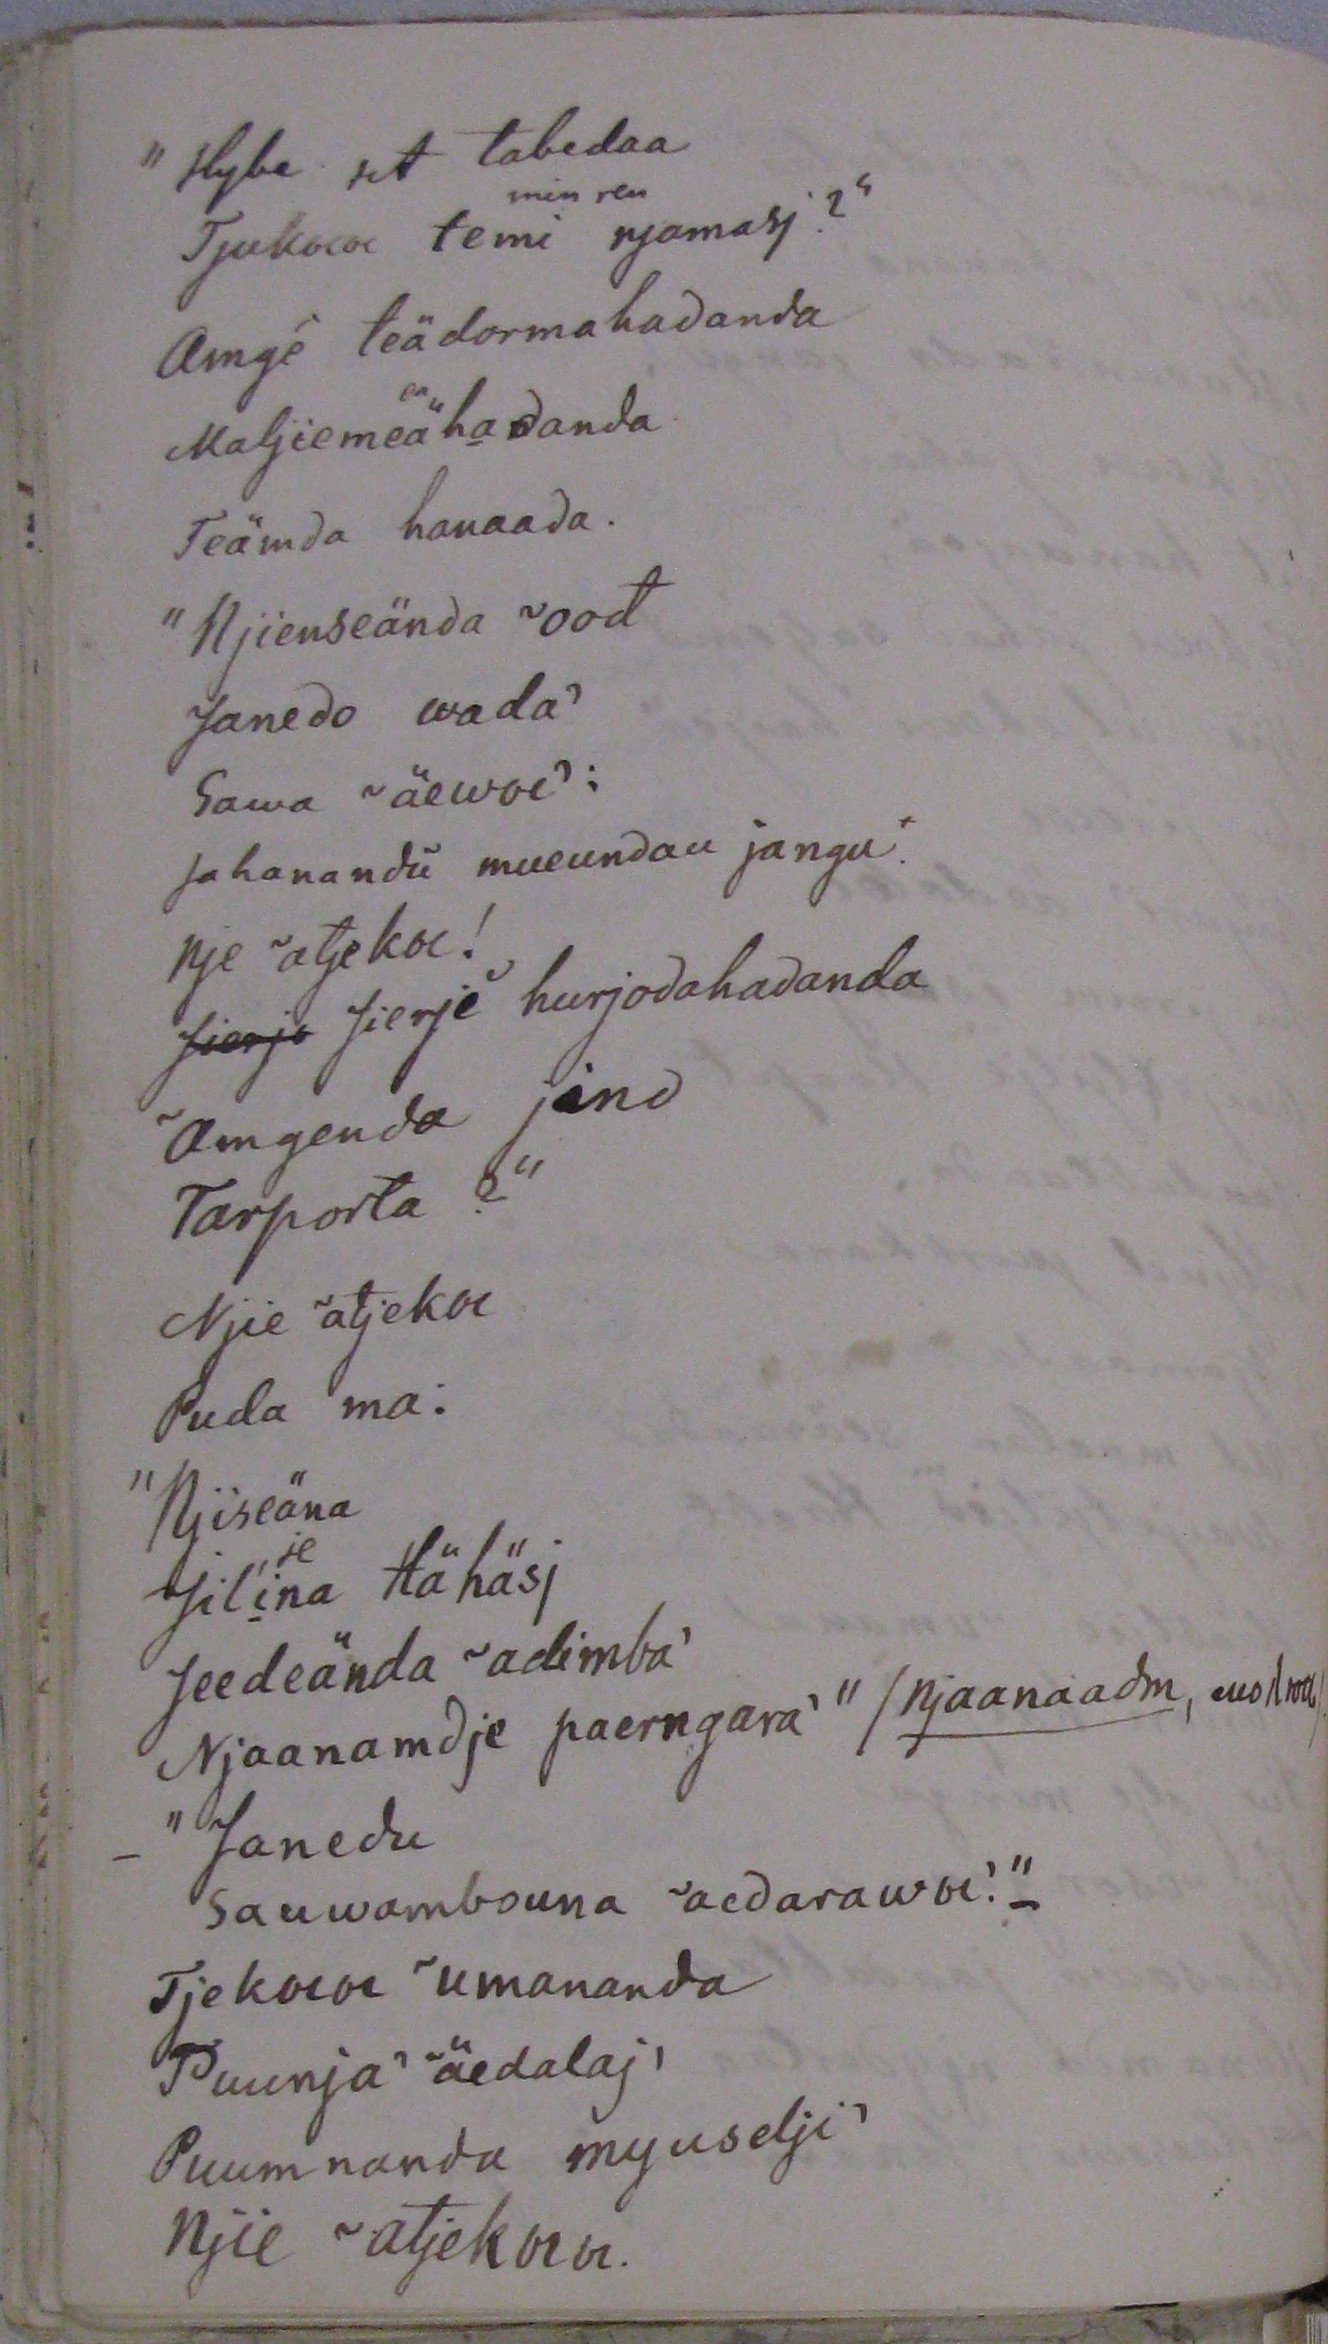 "Hybe sit tabedaa
min ren
Tjukoeoe temi njamasj?"
Amgé teädormahadanda
Maljiemeähadanda
Teämda hanaada.
"Njienseända ˜ood
Janedo wada'
Sawa ˜äewoe':
Jahanandū mueundau jangu'.
Nje ˜atjekoe!
Jierje Jierjē hurjodahadanda
˜Amgenda jind
Tarporta?"
Njie ˜atjekoe
Puda ma:
"Njiseäna
je
Jil'ina Hähäsj
Jeedeända ˜adimba'
Njaanamdje paerngara'" / Njaanaadm,
_ "Janedu
Sauwambouna ˜aedarawoe'."_
Tjekoeoe ˜umananda
Puunja' ˜äedalaj'
Puumnanda myuselji'
Njie ˜atjekoeoe.